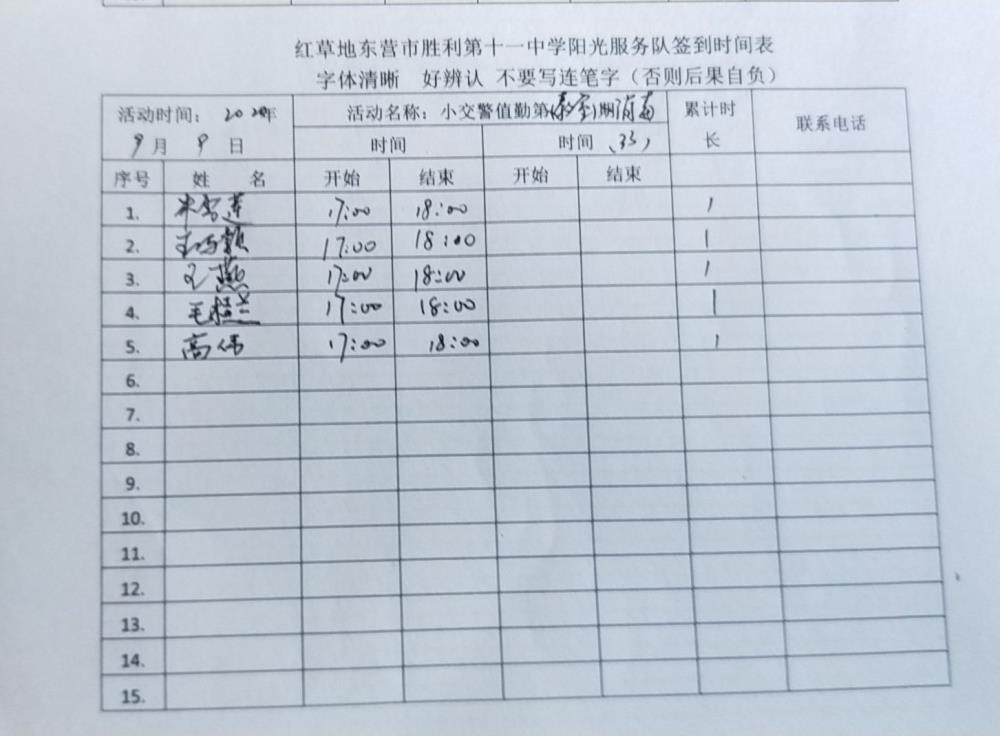 红草地东营市胜利第十一中学阳光服务队签到时间表
字体清晰 好辨认 不要写连笔字（否则后果自负）
活动时间： 年 活动名称：小交警值勤第 期消毒 累计时长 联系电话
9月 9日 时间 时间
序号 姓 名 开始 结束 开始 结束
1. 17:00 18:00 1
2. 17:00 18:00 1
3. 王燕 17:00 18:00 1
4. 17:00 18:00 1
5. 高伟 17:00 18:00 1
6.
7.
8.
9.
10.
11.
12.
13.
14.
15.